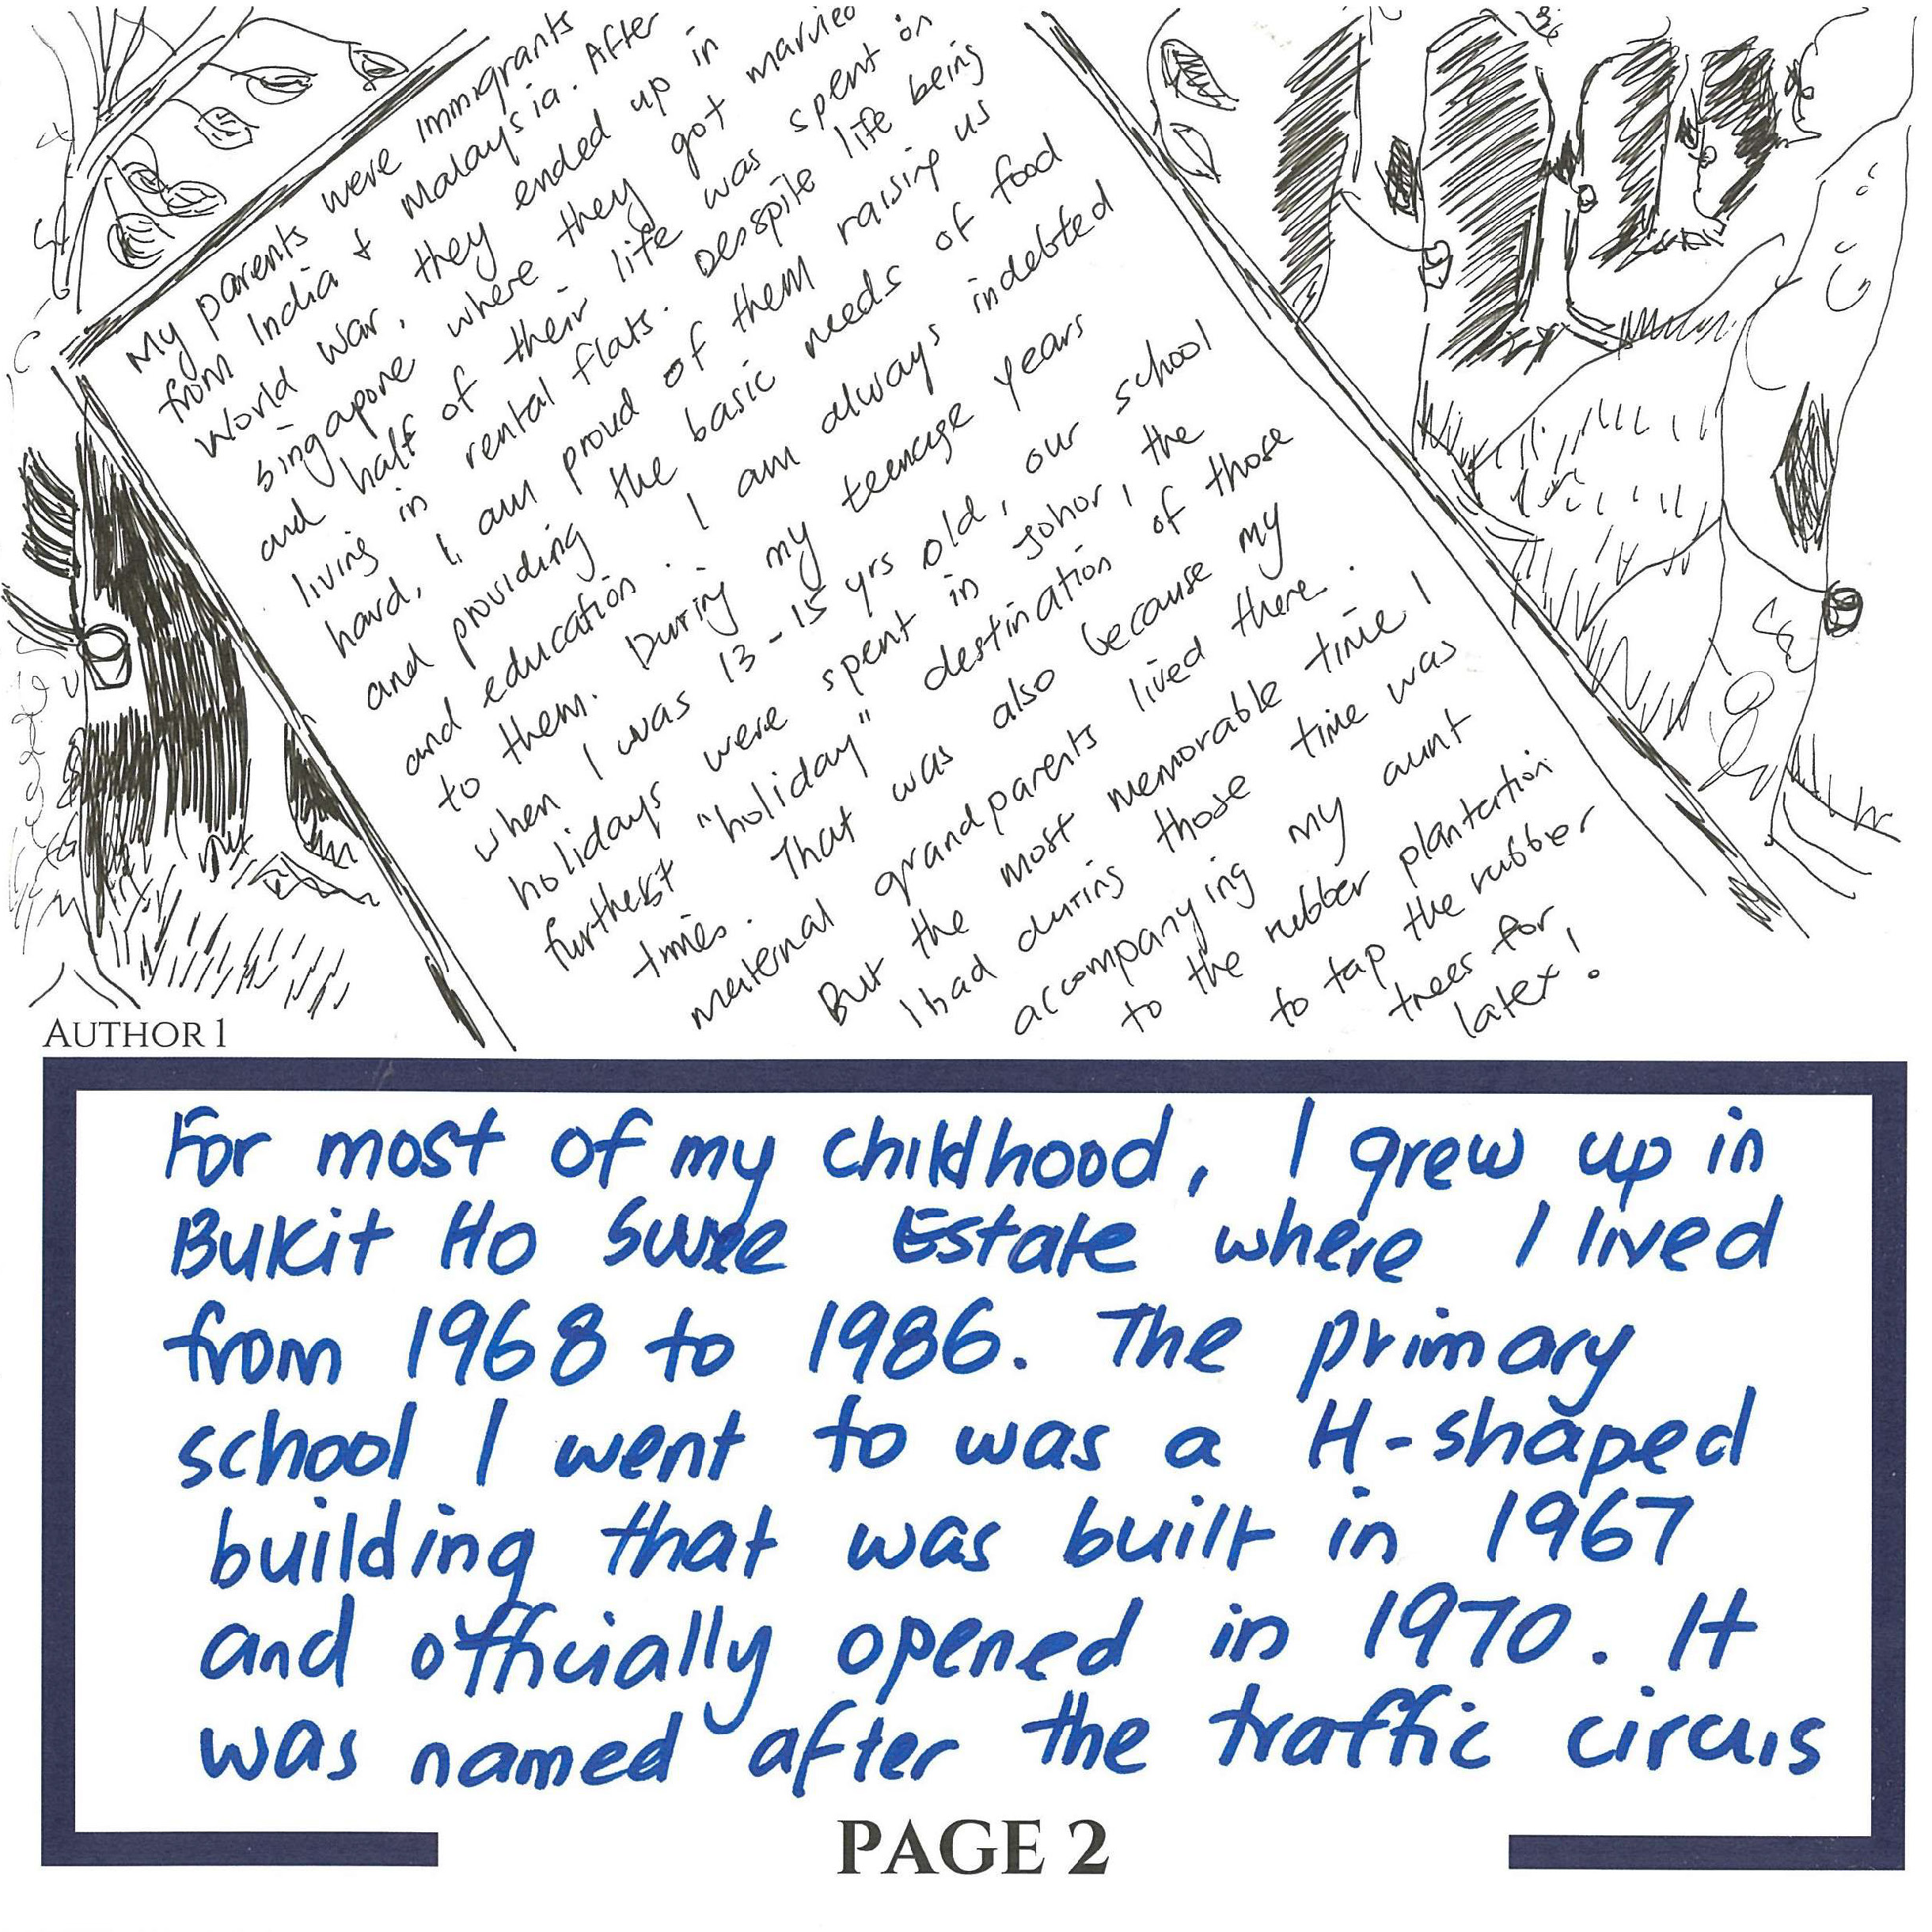 My parents were immigrants
from India & Malaysia. After
World War, they ended up in
Singapore where they got married
and half of their life was spent on
living in rental flats. Despite life being
hard, I, am proud of them raising us
and providing the basic needs of food
and education. I am always indebted
to them. During my teenage years
when I was 13-15 yrs old, our school
holidays were spent in Johor, the
furthest "holiday" destination of those
times. That was also because my
maternal grandparents lived there.
But the most memorable time I
had during those time was
accompanying my aunt
to the rubber plantation
to tap the rubber
trees for
latex!
AUTHOR 1
For most of my childhood, I grew up in
Bukit Ho Swee Estate where I lived
from 1968 to 1986. The primary
school I went to was a H-shaped
building that was built in 1967
and officially opened in 1970. It
was named after the traffic circus
PAGE 2